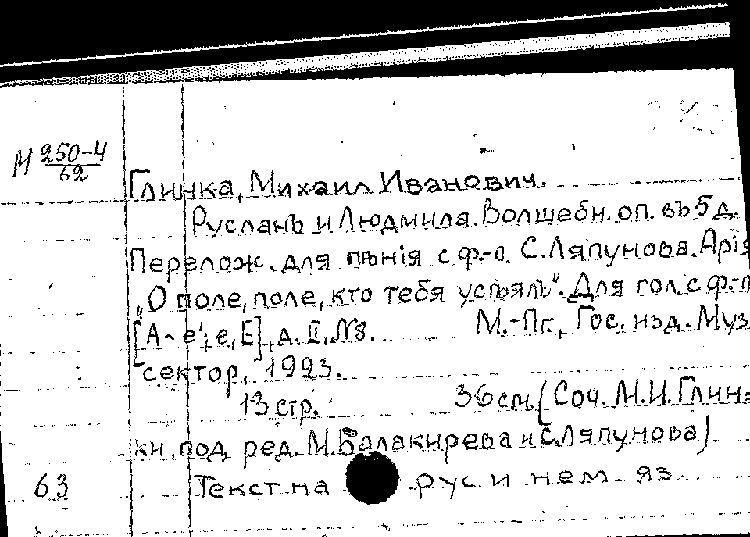 М 250-4
62
Глинка, Михаил Иванович.
Русланъ и Людмила. Волшебн. оп. въ 5 д.
Перелож. для пѣнія с ф.-п. С. Ляпунова. Арія
„О поле, поле, кто тебя усѣялъ". Для гол. с ф.-п
[А-е', е, Е], д. II, №8. М.-Пг., Гос. изд. Муз
сектор, 1923.
13 стр. 36 см. (Соч. М.И. Глин-
ки под ред. М. Балакирева и С. Ляпунова)
63 Текст на рус. и нем. яз.